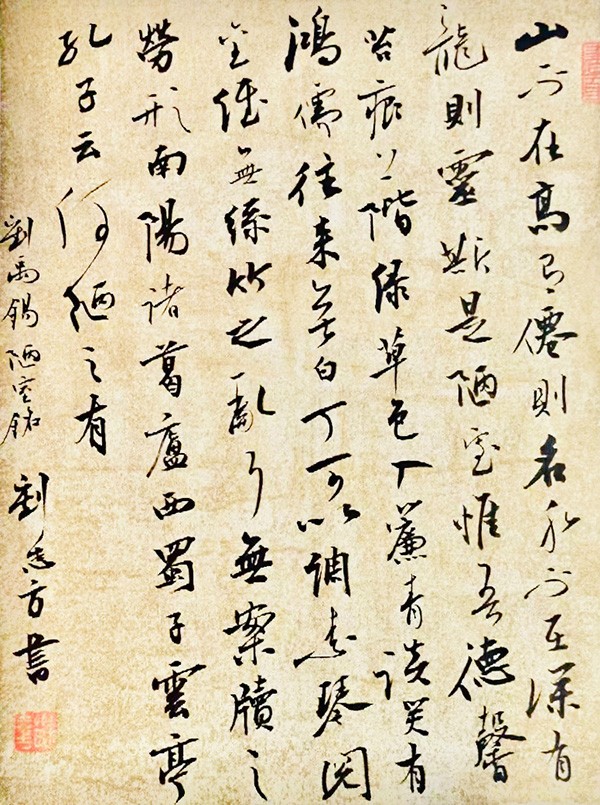 山不在高有僊則名水不在深有
龍則靈斯是陋室惟吾德馨
苔痕上階綠草色入簾青談笑有
鴻儒往來無白丁可以調素琴閱
金經無絲竹之亂耳無案牘之
勞形南陽諸葛廬西蜀子雲亭
孔子云何陋之有
劉禹錫陋室銘 劉志方書